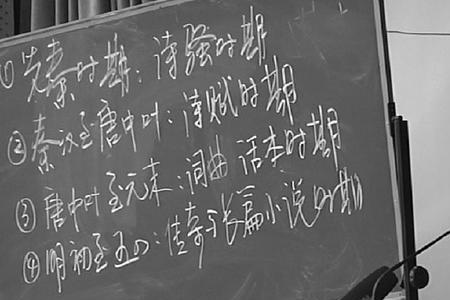 ①先秦时期：诗骚时期
②秦汉至唐中叶：诗赋时期
③唐中叶至元末：词曲 话本时期
④明初至五四：传奇于长篇小说时期